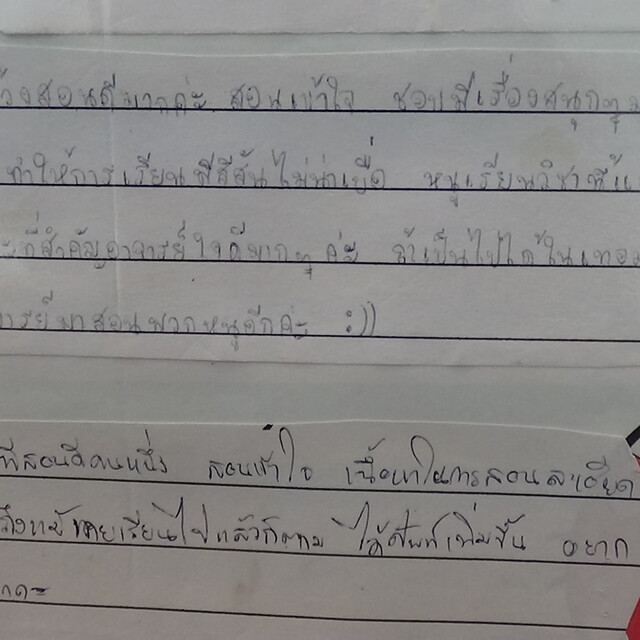 วงสอนดีมากค่ะ สอนเข้าใจ ชอบมีเรื่องสนุกๆ
ทำให้การเรียนมีสีสันไม่น่าเบื่อ หนูเรียนวิชานี้
ที่สำคัญอาจารย์ใจดีมากๆ ค่ะ ถ้าเป็นไปได้ในเทอม
ารย์มาสอนพวกหนูอีกค่ะ :))
ที่สอนดีคนหนึ่ง สอนเข้าใจ เนื้อหาในการสอนละเอียด
ถึงแม้เคยเรียนไปแล้วก็ตาม ได้ศัพท์เพิ่มขึ้น อยาก